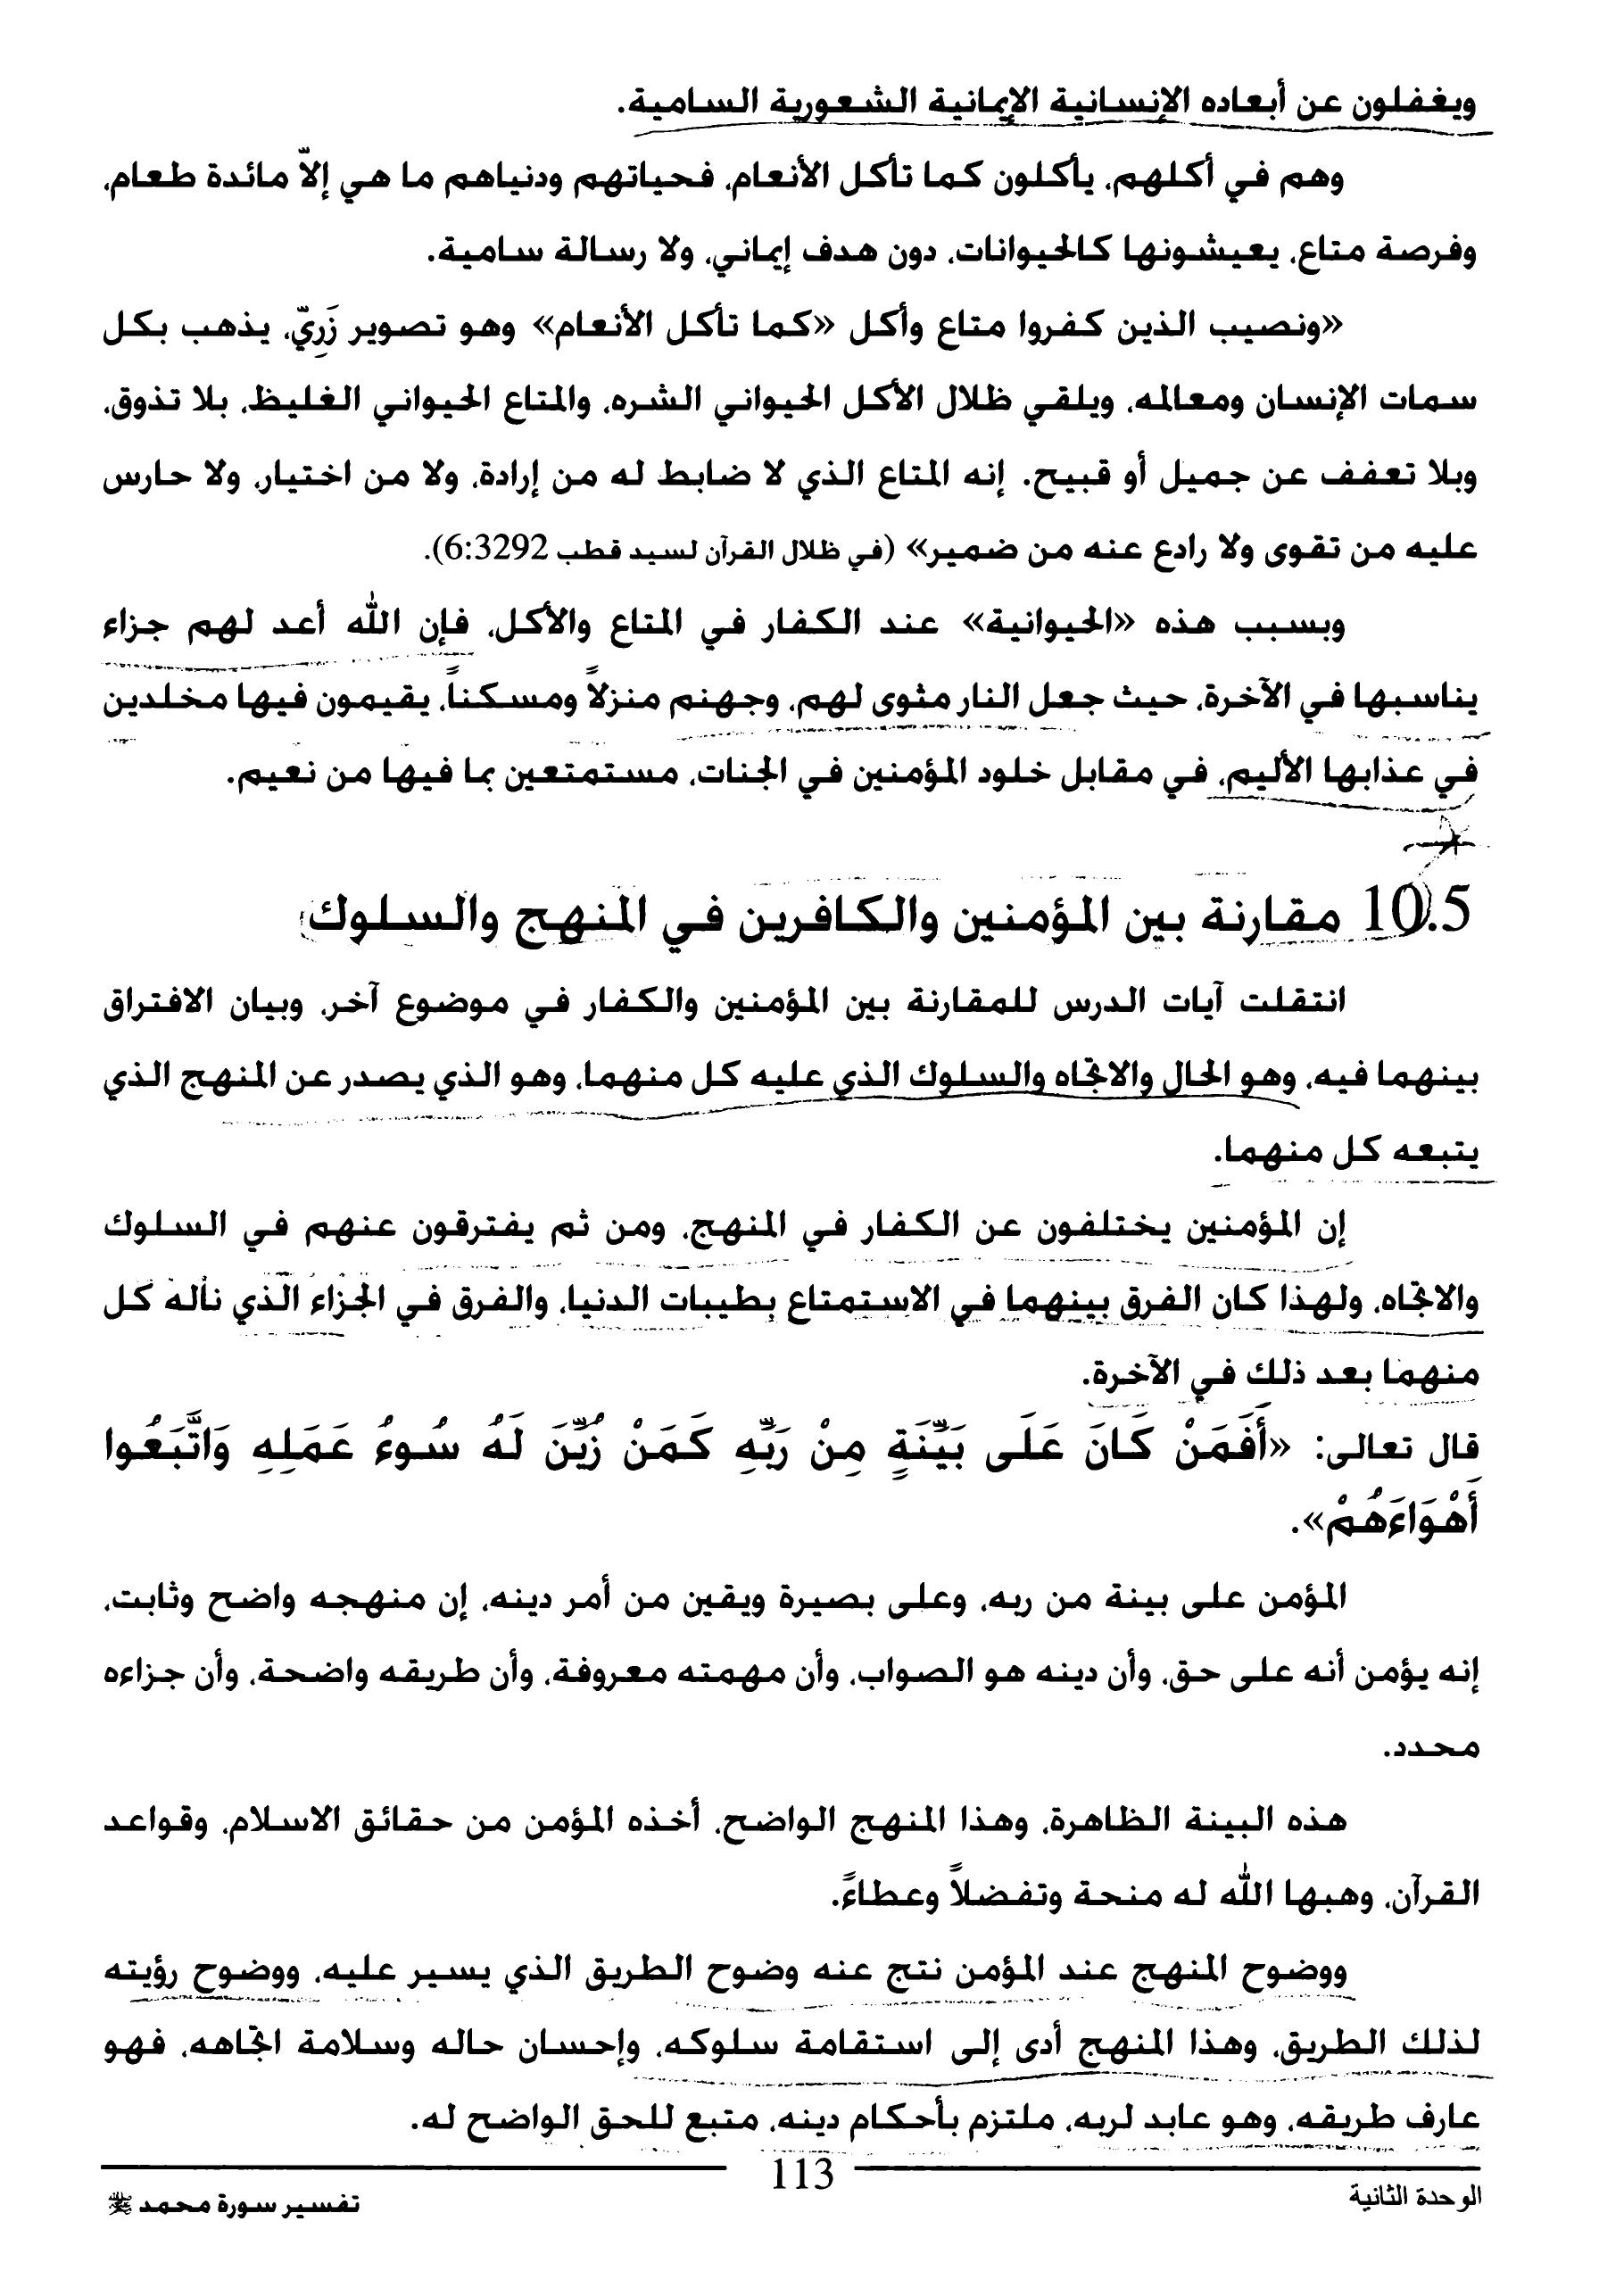 ويغفلون عن أبعاده الإنسانية الإيمانية الشعورية السامية.
وهم في أكلهم، يأكلون كما تأكل الأنعام، فحياتهم ودنياهم ما هي إلاّ مائدة طعام،
وفرصة متاع، يعيشونها كالحيوانات، دون هدف إيماني، ولا رسالة سامية.
«ونصيب الذين كفروا متاع وأكل «كما تأكل الأنعام» وهو تصوير زَرِيّ، يذهب بكل
سمات الإنسان ومعالمه، ويلقي ظلال الأكل الحيواني الشره، والمتاع الحيواني الغليظ، بلا تذوق،
وبلا تعفف عن جميل أو قبيح. إنه المتاع الذي لا ضابط له من إرادة، ولا من اختيار، ولا حارس
عليه من تقوى ولا رادع عنه من ضمير» (في ظلال القرآن لسيد قطب 6:3292).
وبسبب هذه «الحيوانية» عند الكفار في المتاع والأكل، فإن الله أعد لهم جزاء
يناسبها في الآخرة، حيث جعل النار مثوى لهم، وجهنم منزلاً ومسكناً، يقيمون فيها مخلدين
في عذابها الأليم، في مقابل خلود المؤمنين في الجنات، مستمتعين بما فيها من نعيم.
10.5 مقارنة بين المؤمنين والكافرين في المنهج والسلوك
انتقلت آيات الدرس للمقارنة بين المؤمنين والكفار في موضوع آخر، وبيان الافتراق
بينهما فيه، وهو الحال والاتجاه والسلوك الذي عليه كل منهما، وهو الذي يصدر عن المنهج الذي
يتبعه كل منهما.
إن المؤمنين يختلفون عن الكفار في المنهج، ومن ثم يفترقون عنهم في السلوك
والاتجاه، ولهذا كان الفرق بينهما في الاستمتاع بطيبات الدنيا، والفرق في الجزاء الذي ناله كل
منهما بعد ذلك في الآخرة.
قال تعالى: «أَفَمَنْ كَانَ عَلَى بَيِّنَةٍ مِنْ رَبِّهِ كَمَنْ زُيِّنَ لَهُ سُوءُ عَمَلِهِ وَاتَّبَعُوا
أَهْوَاءَهُمْ».
المؤمن على بينة من ربه، وعلى بصيرة ويقين من أمر دينه، إن منهجه واضح وثابت،
إنه يؤمن أنه على حق، وأن دينه هو الصواب، وأن مهمته معروفة، وأن طريقه واضحة، وأن جزاءه
محدد.
هذه البينة الظاهرة، وهذا المنهج الواضح، أخذه المؤمن من حقائق الاسلام، وقواعد
القرآن، وهبها الله له منحة وتفضلاً وعطاءً.
ووضوح المنهج عند المؤمن نتج عنه وضوح الطريق الذي يسير عليه، ووضوح رؤيته
لذلك الطريق، وهذا المنهج أدى إلى استقامة سلوكه، وإحسان حاله وسلامة اتجاهه، فهو
عارف طريقه، وهو عابد لربه، ملتزم بأحكام دينه، متبع للحق الواضح له.
الوحدة الثانية
113
تفسير سورة محمد ﷺ